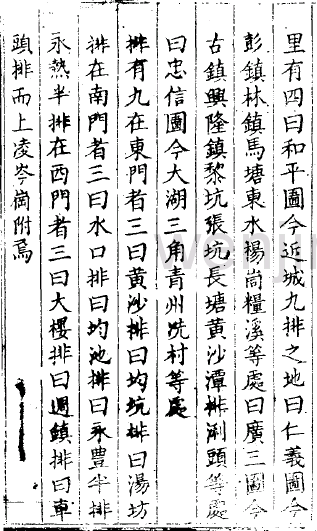 里有四曰和平圖今近城九排之地曰仁義圖今
彭鎮林鎮馬塘東水楊崗糧溪等處曰廣三圖今
古鎮興隆鎮黎坑張坑長塘黄沙潭排浰頭等處
曰忠信圖今大湖三角青州洗村等處
排有九在東門者三曰黄沙排曰均坑排曰湯坊
排在南門者三曰水口排曰均池排曰永豊半排
永熱半排在西門者三曰大樓排曰週鎮排曰車
頭排而上凌岑崗附焉